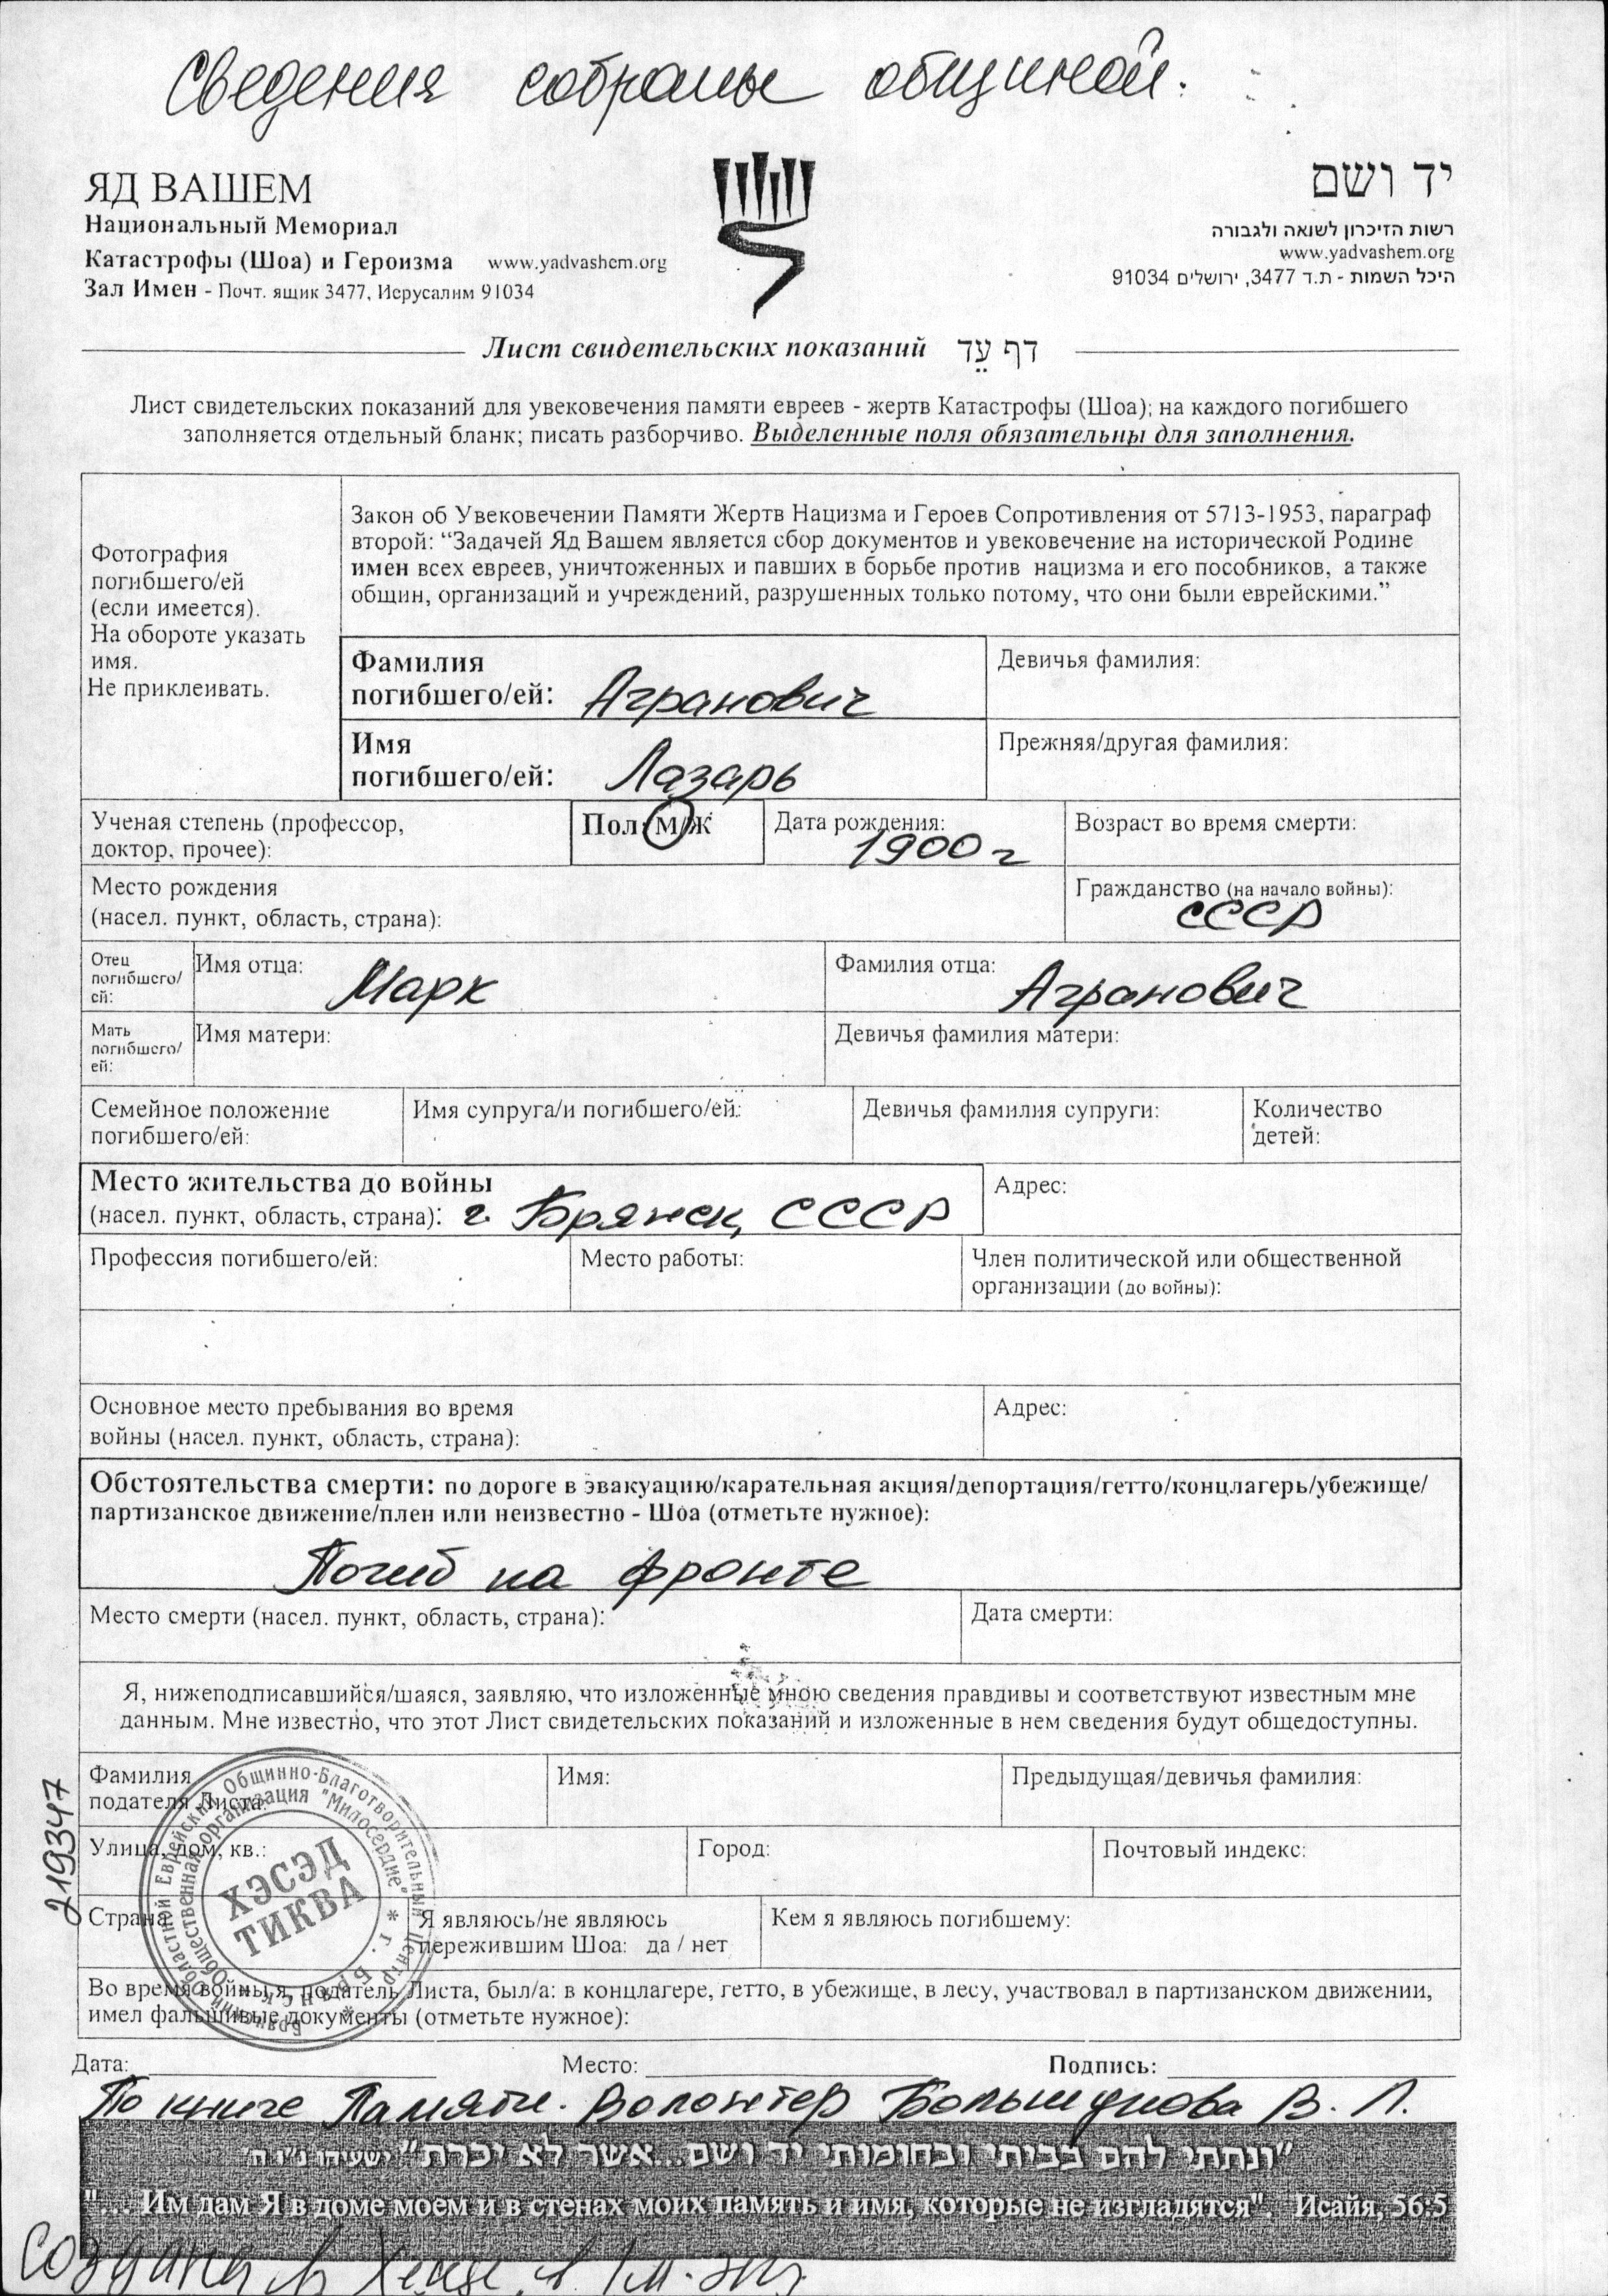 Сведения собраны общиной.
ЯД ВАШЕМ
Национальный Мемориал
Катастрофы (Шоа) и Героизма www.yadvashem.org
Зал Имен - Почт. ящик 3477, Иерусалим 91034
יד ושם
רשות הזיכרון לשואה ולגבורה
www.yadvashem.org
היכל השמות - ת.ד 3477, ירושלים 91034
Лист свидетельских показаний דף עֵד
Лист свидетельских показаний для увековечения памяти евреев - жертв Катастрофы (Шоа); на каждого погибшего
заполняется отдельный бланк; писать разборчиво. Выделенные поля обязательны для заполнения.
Фотография
погибшего/ей
(если имеется).
На обороте указать
имя.
Не приклеивать.
Закон об Увековечении Памяти Жертв Нацизма и Героев Сопротивления от 5713-1953, параграф
второй: “Задачей Яд Вашем является сбор документов и увековечение на исторической Родине
имен всех евреев, уничтоженных и павших в борьбе против нацизма и его пособников, а также
общин, организаций и учреждений, разрушенных только потому, что они были еврейскими.”
Фамилия
погибшего/ей: Агранович
Девичья фамилия:
Имя
погибшего/ей: Лазарь
Прежняя/другая фамилия:
Ученая степень (профессор,
доктор, прочее):
Пол: М/Ж
Дата рождения:
1900 г
Возраст во время смерти:
Место рождения
(насел. пункт, область, страна):
Гражданство (на начало войны):
СССР
Отец
погибшего/
ей:
Имя отца: Марк
Фамилия отца: Агранович
Мать
погибшего/
ей:
Имя матери:
Девичья фамилия матери:
Семейное положение
погибшего/ей:
Имя супруга/и погибшего/ей:
Девичья фамилия супруги:
Количество
детей:
Место жительства до войны
(насел. пункт, область, страна): г. Брянск, СССР
Адрес:
Профессия погибшего/ей:
Место работы:
Член политической или общественной
организации (до войны):
Основное место пребывания во время
войны (насел. пункт, область, страна):
Адрес:
Обстоятельства смерти: по дороге в эвакуацию/карательная акция/депортация/гетто/концлагерь/убежище/
партизанское движение/плен или неизвестно - Шоа (отметьте нужное):
Погиб на фронте
Место смерти (насел. пункт, область, страна):
Дата смерти:
Я, нижеподписавшийся/шаяся, заявляю, что изложенные мною сведения правдивы и соответствуют известным мне
данным. Мне известно, что этот Лист свидетельских показаний и изложенные в нем сведения будут общедоступны.
Фамилия
подателя Листа:
Имя:
Предыдущая/девичья фамилия:
Улица, дом, кв.:
Город:
Почтовый индекс:
Страна:
Я являюсь/не являюсь
пережившим Шоа: да / нет
Кем я являюсь погибшему:
Во время войны я, податель Листа, был/а: в концлагере, гетто, в убежище, в лесу, участвовал в партизанском движении,
имел фальшивые документы (отметьте нужное):
Брянский Областной Еврейский Общинно-Благотворительный Центр
Общественная организация "Милосердие" * г. Брянск *
ХЭСЭД
ТИКВА
219347
Дата:
Место:
Подпись:
По книге Памяти. Волонтер Большунова В. Л.
"ונתתי להם בביתי ובחומותי יד ושם...אשר לא יכרת" ישעיהו נ"ו ה'
"... Им дам Я в доме моем и в стенах моих память и имя, которые не изгладятся". Исайя, 56:5